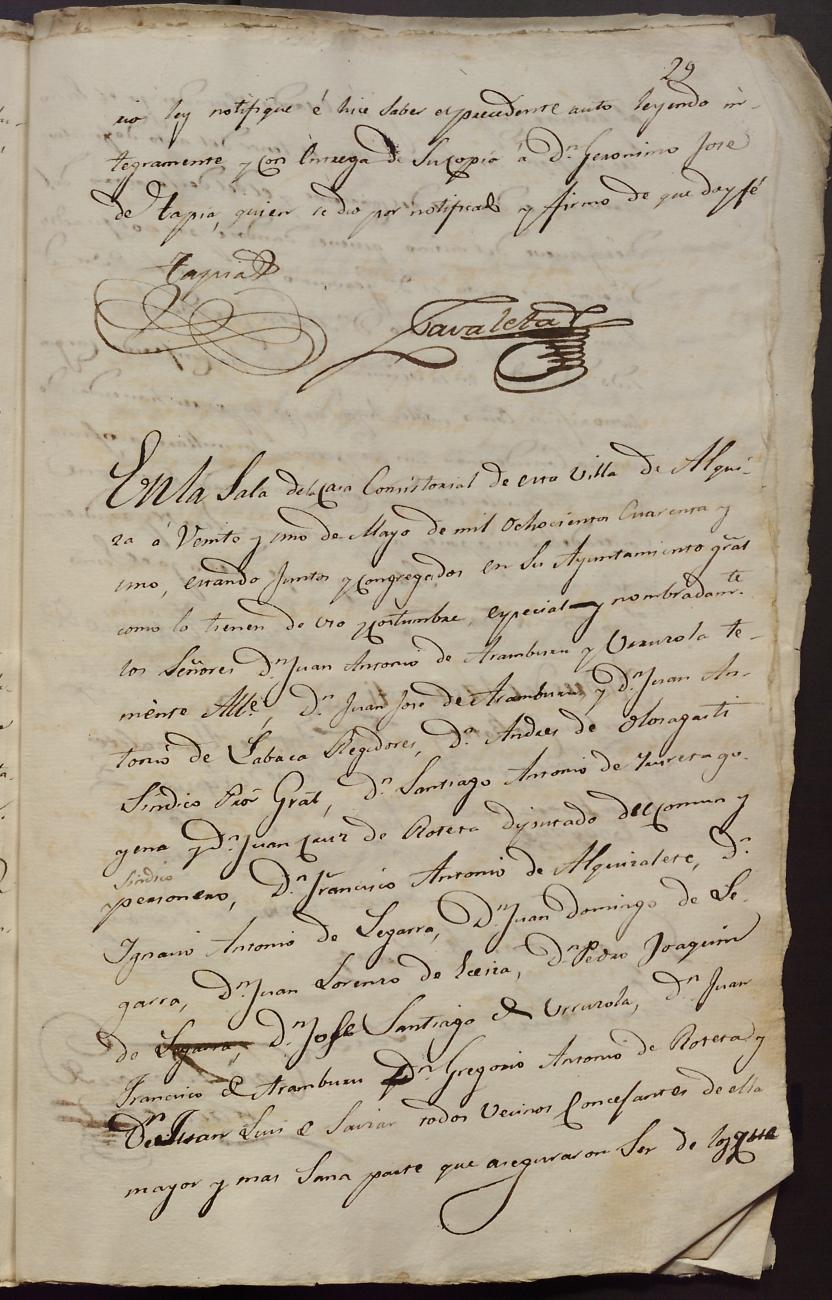 29
rio ley notifique é hice saber el precedente auto leyendo in-
tegramente y con entrega de su copia á Dn. Geronimo Jose
de Tapia, quien se dio por notificado y firmo de que doy fé
Tapia
Zavaleta
En la Sala de la Casa Consistorial de esta Villa de Alqui-
za á Veinte y uno de Mayo de mil ochocientos cuarenta y
uno, estando juntos y congregados en su Ayuntamiento gral
como lo tienen de uso y costumbre, especial y nombradamte.
los Señores Dn. Juan Antonio de Aramburu y Urruzola te-
niente Alle., Dn. Juan Jose de Aramburu, y Dn. Juan An-
tonio de Labaca Regidores, Dn. Andres de Olosagasti
Sindico Pror Gral, Dn. Santiago Antonio de Yurretagu-
yena y Dn. Juan Cruz de Roteta diputado del comun y
Sindico
personero, Dn. Francisco Antonio de Alquizalete, Dn.
Ignacio Antonio de Legarra, Dn. Juan Domingo de Le-
garra, Dn. Juan Lorenzo de Iceiza, Dn. Pedro Joaquin
de Legarra, Dn. Jose Santiago de Urruzola, Dn. Juan
Francisco de Aramburu Dn. Gregorio Antonio de Roteta y
Dn. Juan Luis de Saizar todos vecinos Concejantes de ella
mayor y mas sana parte que aseguraron ser de los que